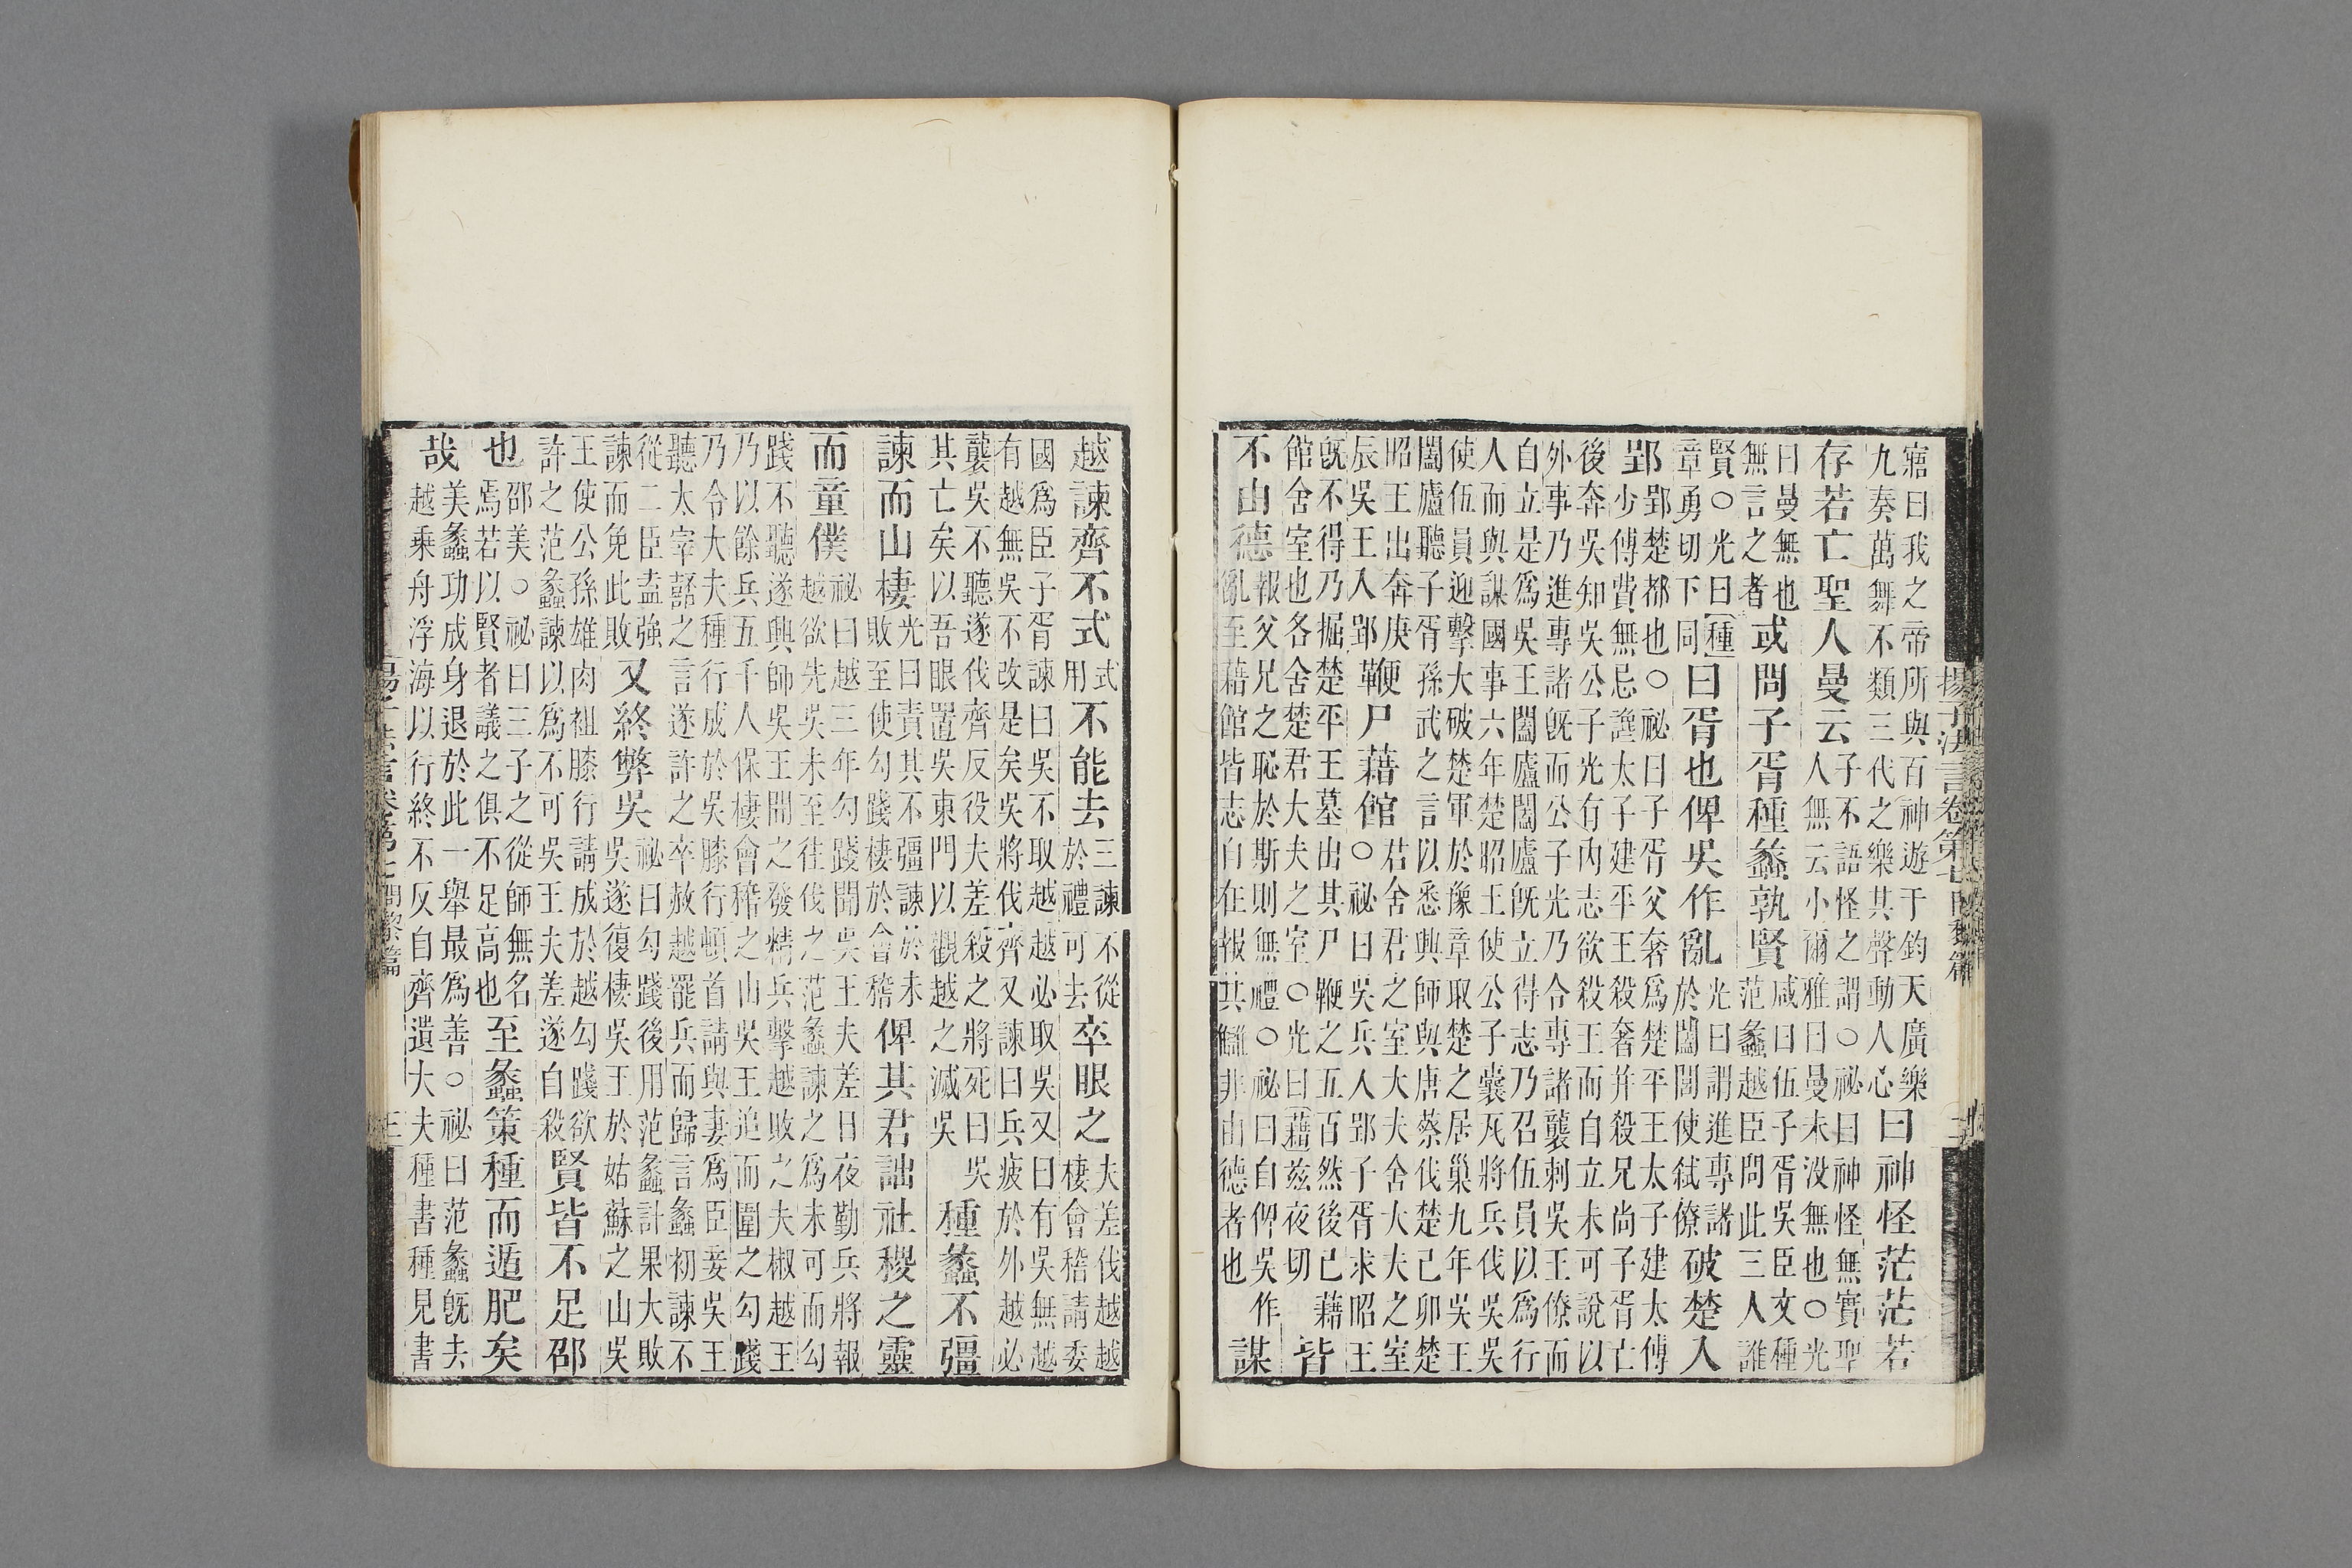 揚子法言卷第七
寤曰我之帝所與百神遊于鈞天廣樂九奏萬舞不類三代之樂其聲動人心曰神怪茫茫若
存若亡聖人曼云子不語怪之謂○祕曰神怪無實聖人無云小爾雅曰曼未没無也○光
曰曼無也無言之者或問子胥種蠡孰賢咸曰伍子胥吳臣文種范蠡越臣問此三人誰
賢○光曰種章勇切下同曰胥也俾吳作亂光曰謂進專諸於闔閭使弑僚破楚入
郢郢楚都也○祕曰子胥父奢爲楚平王太子建太傅少傅費無忌讒太子建平王殺奢并殺兄尚子胥亡
後奔吳知吳公子光有内志欲殺王而自立未可說以外事乃進專諸旣而公子光乃令專諸襲刺吳王僚而
自立是爲吳王闔廬闔廬旣立得志乃召伍員以爲行人而與謀國事六年楚昭王使公子囊瓦將兵伐吳吳
使伍員迎擊大破楚軍於豫章取楚之居巢九年吳王闔廬聽子胥孫武之言以悉興師與唐蔡伐楚己卯楚
昭王出奔庚辰吳王入郢鞭尸藉館君舍君之室大夫舍大夫之室○祕曰吳兵人郢子胥求昭王
旣不得乃掘楚平王墓出其尸鞭之五百然後已藉館舍室也各舍楚君大夫之室○光曰藉兹夜切皆
不由德報父兄之恥於斯則無禮○祕曰自俾吳作亂至藉館皆志自在報其讎非由德者也謀
越諫齊不式式用不能去三諫不從於禮可去卒眼之夫差伐越越棲會稽請委
國爲臣子胥諫曰吳不取越越必取吳又曰有吳無越有越無吳不改是矣吳將伐齊又諫曰兵疲於外越必
襲吳不聽遂伐齊反役夫差殺之將死曰吳其亡矣以吾眼置吳東門以觀越之滅吳種蠡不彊
諫而山棲光曰責其不彊諫於未敗至使勾踐棲於會稽俾其君詘社稷之靈
而童僕祕曰越三年勾踐聞吳王夫差日夜勤兵將報越欲先吳未至往伐之范蠡諫之爲未可而勾
踐不聽遂興師吳王聞之發精兵擊越敗之夫椒越王乃以餘兵五千人保棲會稽之山吳王追而圍之勾踐
乃令大夫種行成於吳膝行頓首請與妻爲臣妾吳王聽太宰嚭之言遂許之卒赦越罷兵而歸言蠡初諫不
從二臣盍強諫而免此敗又終弊吳祕曰勾踐後用范蠡計果大敗吳遂復棲吳王於姑蘇之山吳
王使公孫雄肉袒膝行請成於越勾踐欲許之范蠡諫以爲不可吳王夫差遂自殺賢皆不足邵
也邵美○祕曰三子之從師無名焉若以賢者議之俱不足高也至蠡策種而遁肥矣
哉美蠡功成身退於此一舉最爲善○祕曰范蠡旣去越乘舟浮海以行終不反自齊遺大夫種書種見書